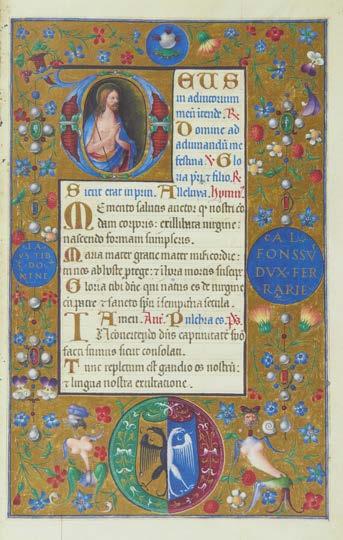 DEUS
in adiutorium
meū ītende. R.
Domine ad
adiuuandū me
festina. V. Glo
ria pr̄i, & filio. R.
Sicut erat in prin. Alleluya. Hymn⁹.
MEmento salutis auctor q nostri co
dam corporis: ex illibata uirgine:
nascendo formam sumpseris.
Maria mater gratie mater misericordie:
tu nos ab hoste
Gloria tibi dn̄e qui natus es de uirgine
cū patre & sancto spū ī sempiterna secula.
Amen. Añ. Pulchra es. Ps
IN conuertendo dn̄s captiuitatē syō
facti sumus sicut consolati.
Tunc repletum est gaudio os nostrū:
& lingua nostra exultatione.
LA
VS TIBI
DO
MINE
AL
FONSSV
DVX FER
RARIE